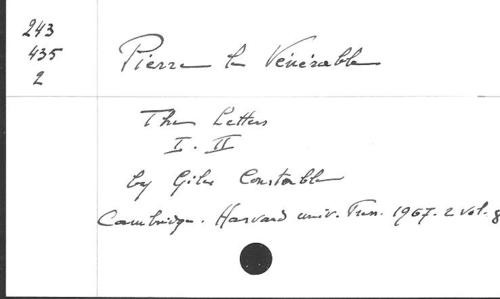 243
435
2
Pierre le Vénérable
The Letters
I. II
by Giles Constable
Cambridge. Harvard univ. Press. 1967. 2 vol. 8